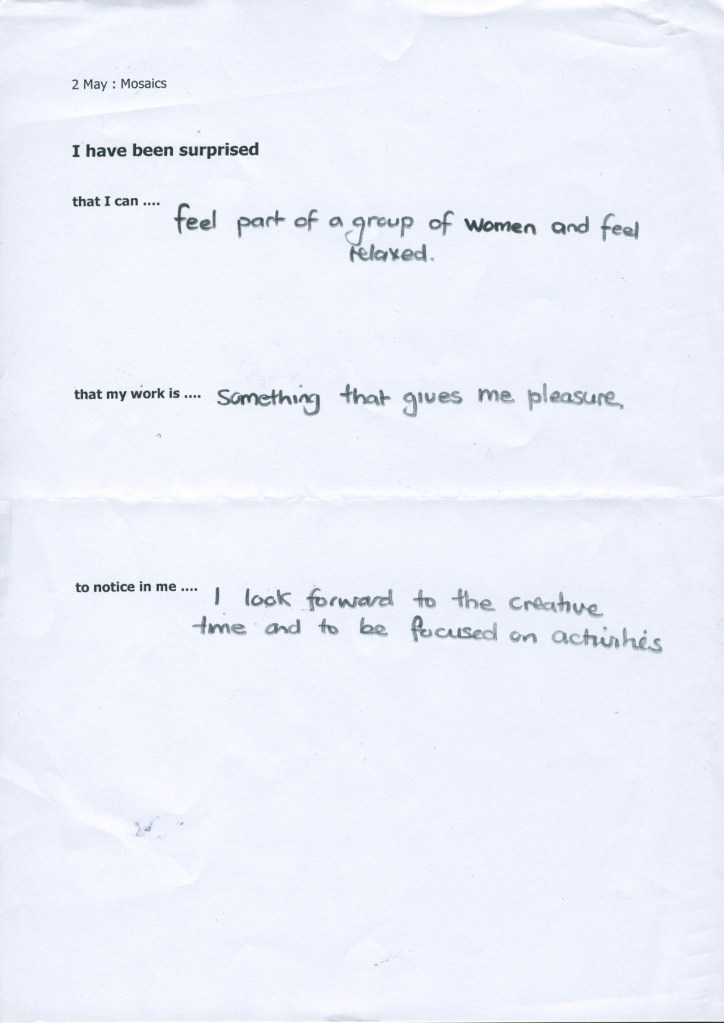 2 May : Mosaics
I have been surprised
that I can .... feel part of a group of women and feel
relaxed.
that my work is .... Something that gives me pleasure.
to notice in me .... I look forward to the creative
time and to be focused on activities